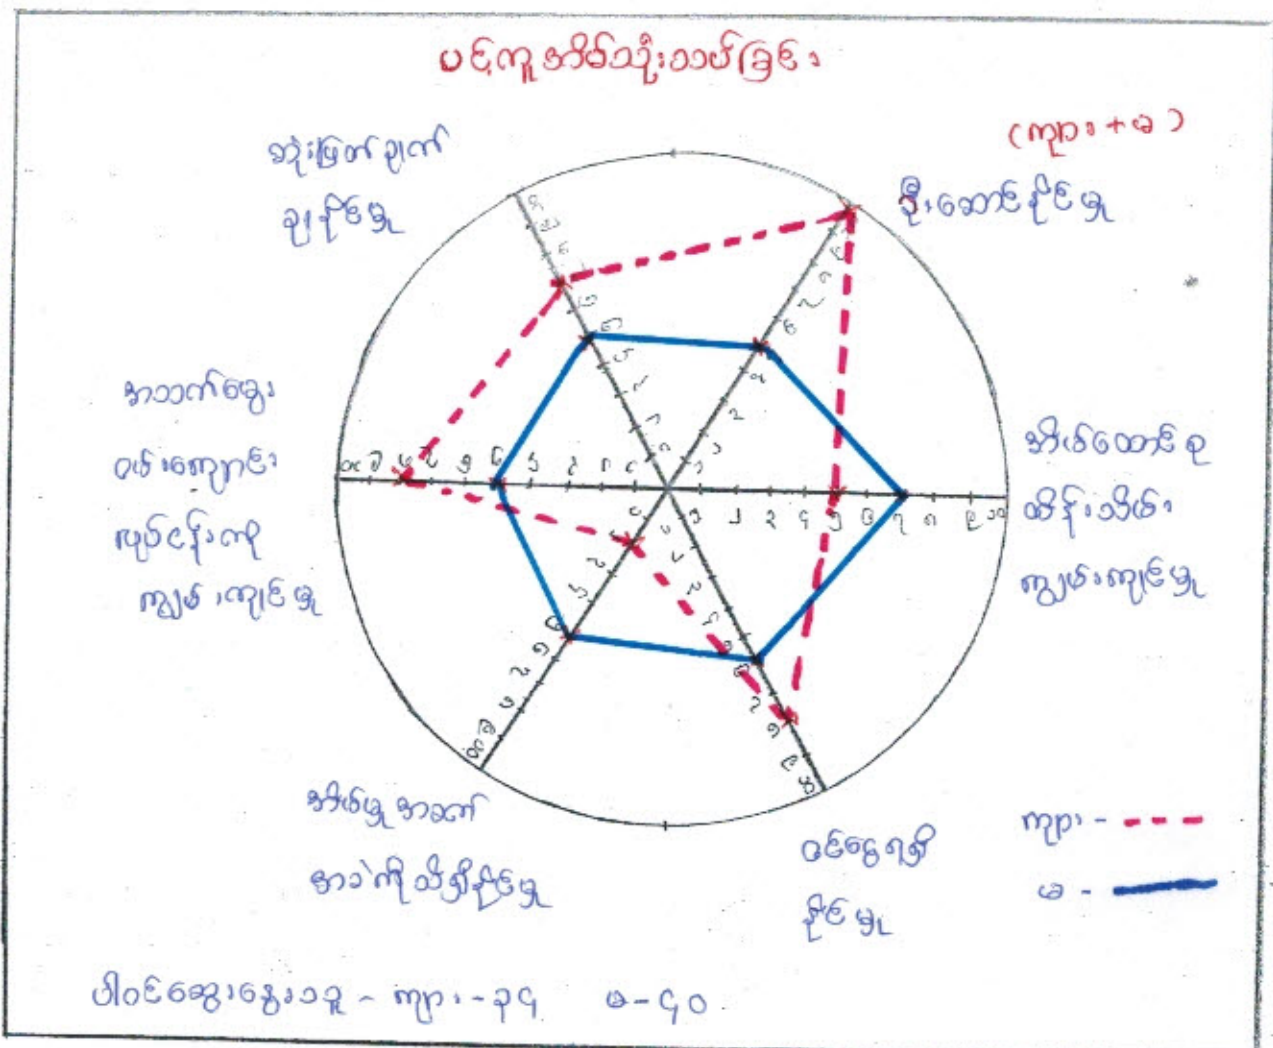 ပင့်ကူအိမ်သုံးသပ်ခြင်း
(ကျား+မ)
ဆုံးဖြတ်ချက်
ချနိုင်မှု
ဦးဆောင်နိုင်မှု
အသက်မွေး
ဝမ်းကျောင်း
လုပ်ငန်းကို
ကျွမ်းကျင်မှု
အိမ်ထောင်စု
ထိန်းသိမ်း
ကျွမ်းကျင်မှု
အိမ်မှုအခက်
အခဲကိုသိရှိနိုင်မှု
ဝင်ငွေရရှိ
နိုင်မှု
ကျား -
မ -
ပါဝင်ဆွေးနွေးသူ - ကျား - ၃၄ မ - ၄၀